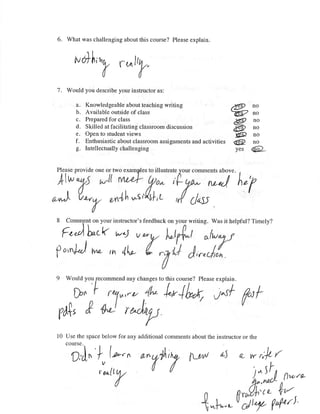 6. What was challenging about this course? Please explain.
Nothing really.
7. Would you describe your instructor as:
a. Knowledgeable about teaching writing yes no
b. Available outside of class yes no
c. Prepared for class yes no
d. Skilled at facilitating classroom discussion yes no
e. Open to student views yes no
f. Enthusiastic about classroom assignments and activities yes no
g. Intellectually challenging yes no
Please provide one or two examples to illustrate your comments above.
Always will meet you if you need help
and very enthusiastic in class
8 Comment on your instructor's feedback on your writing. Was it helpful? Timely?
Feedback was very helpful always
pointed me in the right direction.
9 Would you recommend any changes to this course? Please explain.
Don't require the textbook, just post
pdfs of the readings.
10 Use the space below for any additional comments about the instructor or the
course.
Didn't learn anything new as a writer
really, just
gained more
practice for
future college papers.